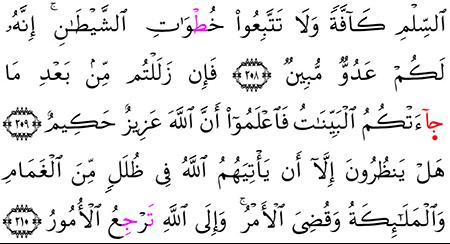 ٱلسِّلْمِ كَآفَّةً وَلَا تَتَّبِعُوا۟ خُطْوَٰتِ ٱلشَّيْطَٰنِ ۚ إِنَّهُۥ
لَكُمْ عَدُوٌّ مُّبِينٌ ٢٠٨ فَإِن زَلَلْتُم مِّنۢ بَعْدِ مَا
جَآءَتْكُمُ ٱلْبَيِّنَٰتُ فَٱعْلَمُوٓا۟ أَنَّ ٱللَّهَ عَزِيزٌ حَكِيمٌ ٢٠٩
هَلْ يَنظُرُونَ إِلَّآ أَن يَأْتِيَهُمُ ٱللَّهُ فِى ظُلَلٍ مِّنَ ٱلْغَمَامِ
وَٱلْمَلَٰٓئِكَةُ وَقُضِىَ ٱلْأَمْرُ ۚ وَإِلَى ٱللَّهِ تَرْجِعُ ٱلْأُمُورُ ٢١٠